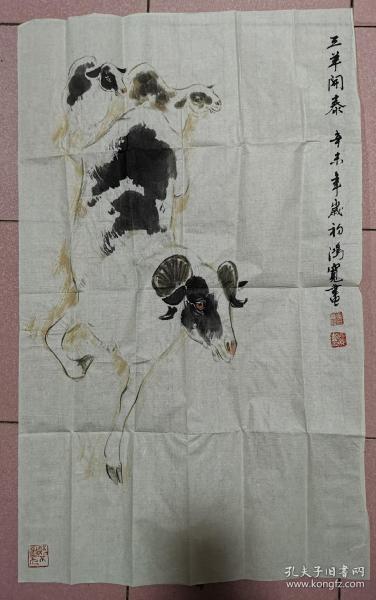 三羊開泰 辛未年歲初鴻寬畫
孔夫子旧书网
www.kongfz.com